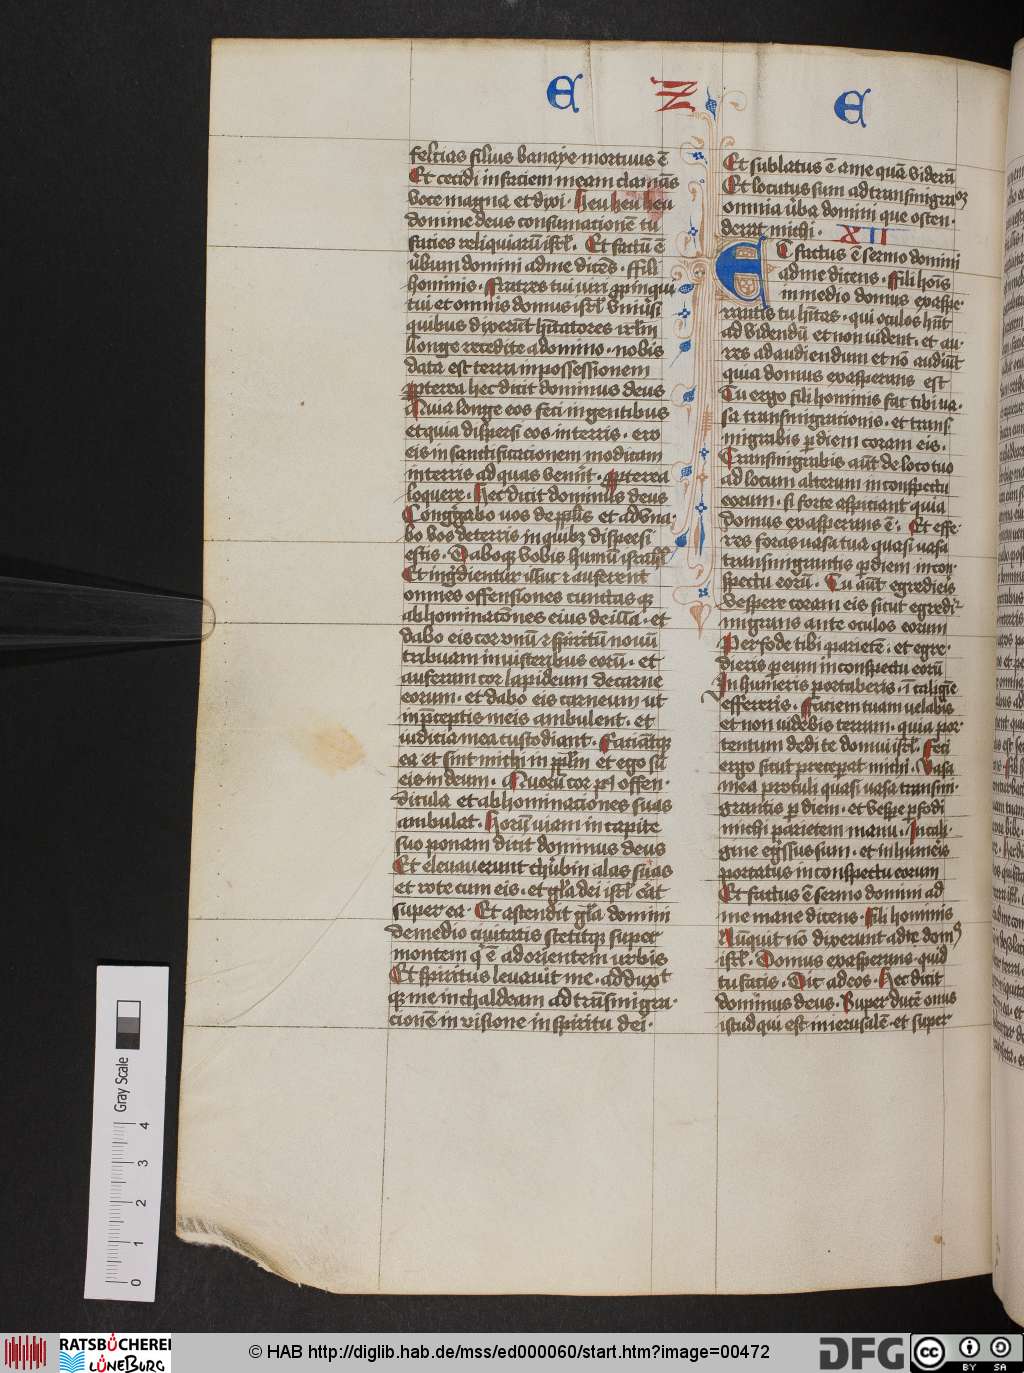 E Z E
feltias filius banaye mortuus ē
Et cecidi in faciem meam clamās
voce magna et dixi · Heu heu heu
domine deus consumationē tu
facies reliquiarū isrl̄ . Et factū ē
ūbum domini ad me dicēs · Fili
hominis · Fratres tui viri ꝓpinqui
tui et omnis domus isrl̄ vniūsi
quibus dixerūt hītatores irl̄m
Longe recedite a domino · nobis
data est terra in possessionem
ꝓpterea hec dicit dominus deus
Quia longe eos feci in gentibus
et quia dispersi eos in terris · ero
eis in sanctificationem modicam
in terris ad quas venīnt · ꝓpterea
loquere · Hec dicit dominus deus
Congͣgabo vos de pp̄lis et aduna·
bo vos de terris in quibꝫ dispersi
estis · Daboqꝫ vobis humū israhl̄
Et ingͣdientur illuc ⁊ auferent
omnes offensiones cunctasqꝫ
abhominatōnes eius de illa · et
dabo eis cor vnū ⁊ spiritū nouū
tribuam in visceribus eorū · et
auferam cor lapideum de carne
eorum · et dabo eis carneum ut
in p̄ceptis meis ambulent · et
iudicia mea custodiant · Faciātqꝫ
ea et sint michi in pp̄lm et ego sū
eis in deum . Quorū cor pꝰ offen·
dicula et abhominaciones suas
ambulat · Horū viam in capite
suo ponam dicit dominus deus
Et eleuauerunt chūbin alas suas
et rote cum eis · et gl̄a dei isrl̄ ēat
super ea · Et ascendit gl̄a domini
de medio ciuitatis stetitqꝫ super
montem q̄ ē ad orientem urbis
Et spiritus leuauit me · adduxͭ
qꝫ me in chaldeam ad trāsmigra·
cionē in visione in spiritu dei ·
Et sublatus ē a me quā viderū
Et locutus sum ad transmigraōꝫ
omnia ūba domini que osten·
derat michi . XII
Et factus ē sermo domini
ad me dicens · Fili hoīs
in medio domus exaspe·
rantis tu hītas · qui oculos hūt
ad videndū et non vident · et au·
res ad audiendum et nō audiūt
quia domus exasperans est
Tu ergo fili hominis fac tibi ua·
sa transmigracionis · et trans
migrabis ꝑ diem coram eis .
Transmigrabis aūt de loco tuo
ad locum alterum in conspectu
eorum · si forte aspiciant quia
domus exasperans ē . Et effe·
res foras uasa tua quasi uasa
transmigrantis ꝑ diem in con·
spectu eorū . Tu aūt egredieis
vespere coram eis sicut egredīͬ
migrans ante oculos eorum
Perfode tibi parietē · et egre·
dieris ꝑ eum in conspectu eorū
In humeris portaberis · ī caligīe
effereris . Faciem tuam uelabis
et non uidebis terram · quia por·
tentum dedi te domui isrl̄ . Feci
ergo sicut preceperat michi . Vasa
mea protuli quasi uasa transmi·
grantis ꝑ diem · et vesꝑe ꝑfodi
michi parietem manu · In cali·
gine egr̄ssus sum · et in humeris
portatus in conspectu eorum
Et factus ē sermo domini ad
me mane dicens · Fili hominis
Nūquit nō dixerunt ad te domꝰ
isrl̄ · Domus exasperans · quid
tu facis . Dic ad eos · Hec dicit
dominus deus · Super ducē onus
istud qui est in ierusalē · et super
Gray Scale
4
3
2
1
0
RATSBÜCHEREI
LÜNEBURG
© HAB http://diglib.hab.de/mss/ed000060/start.htm?image=00472
DFG
cc BY SA